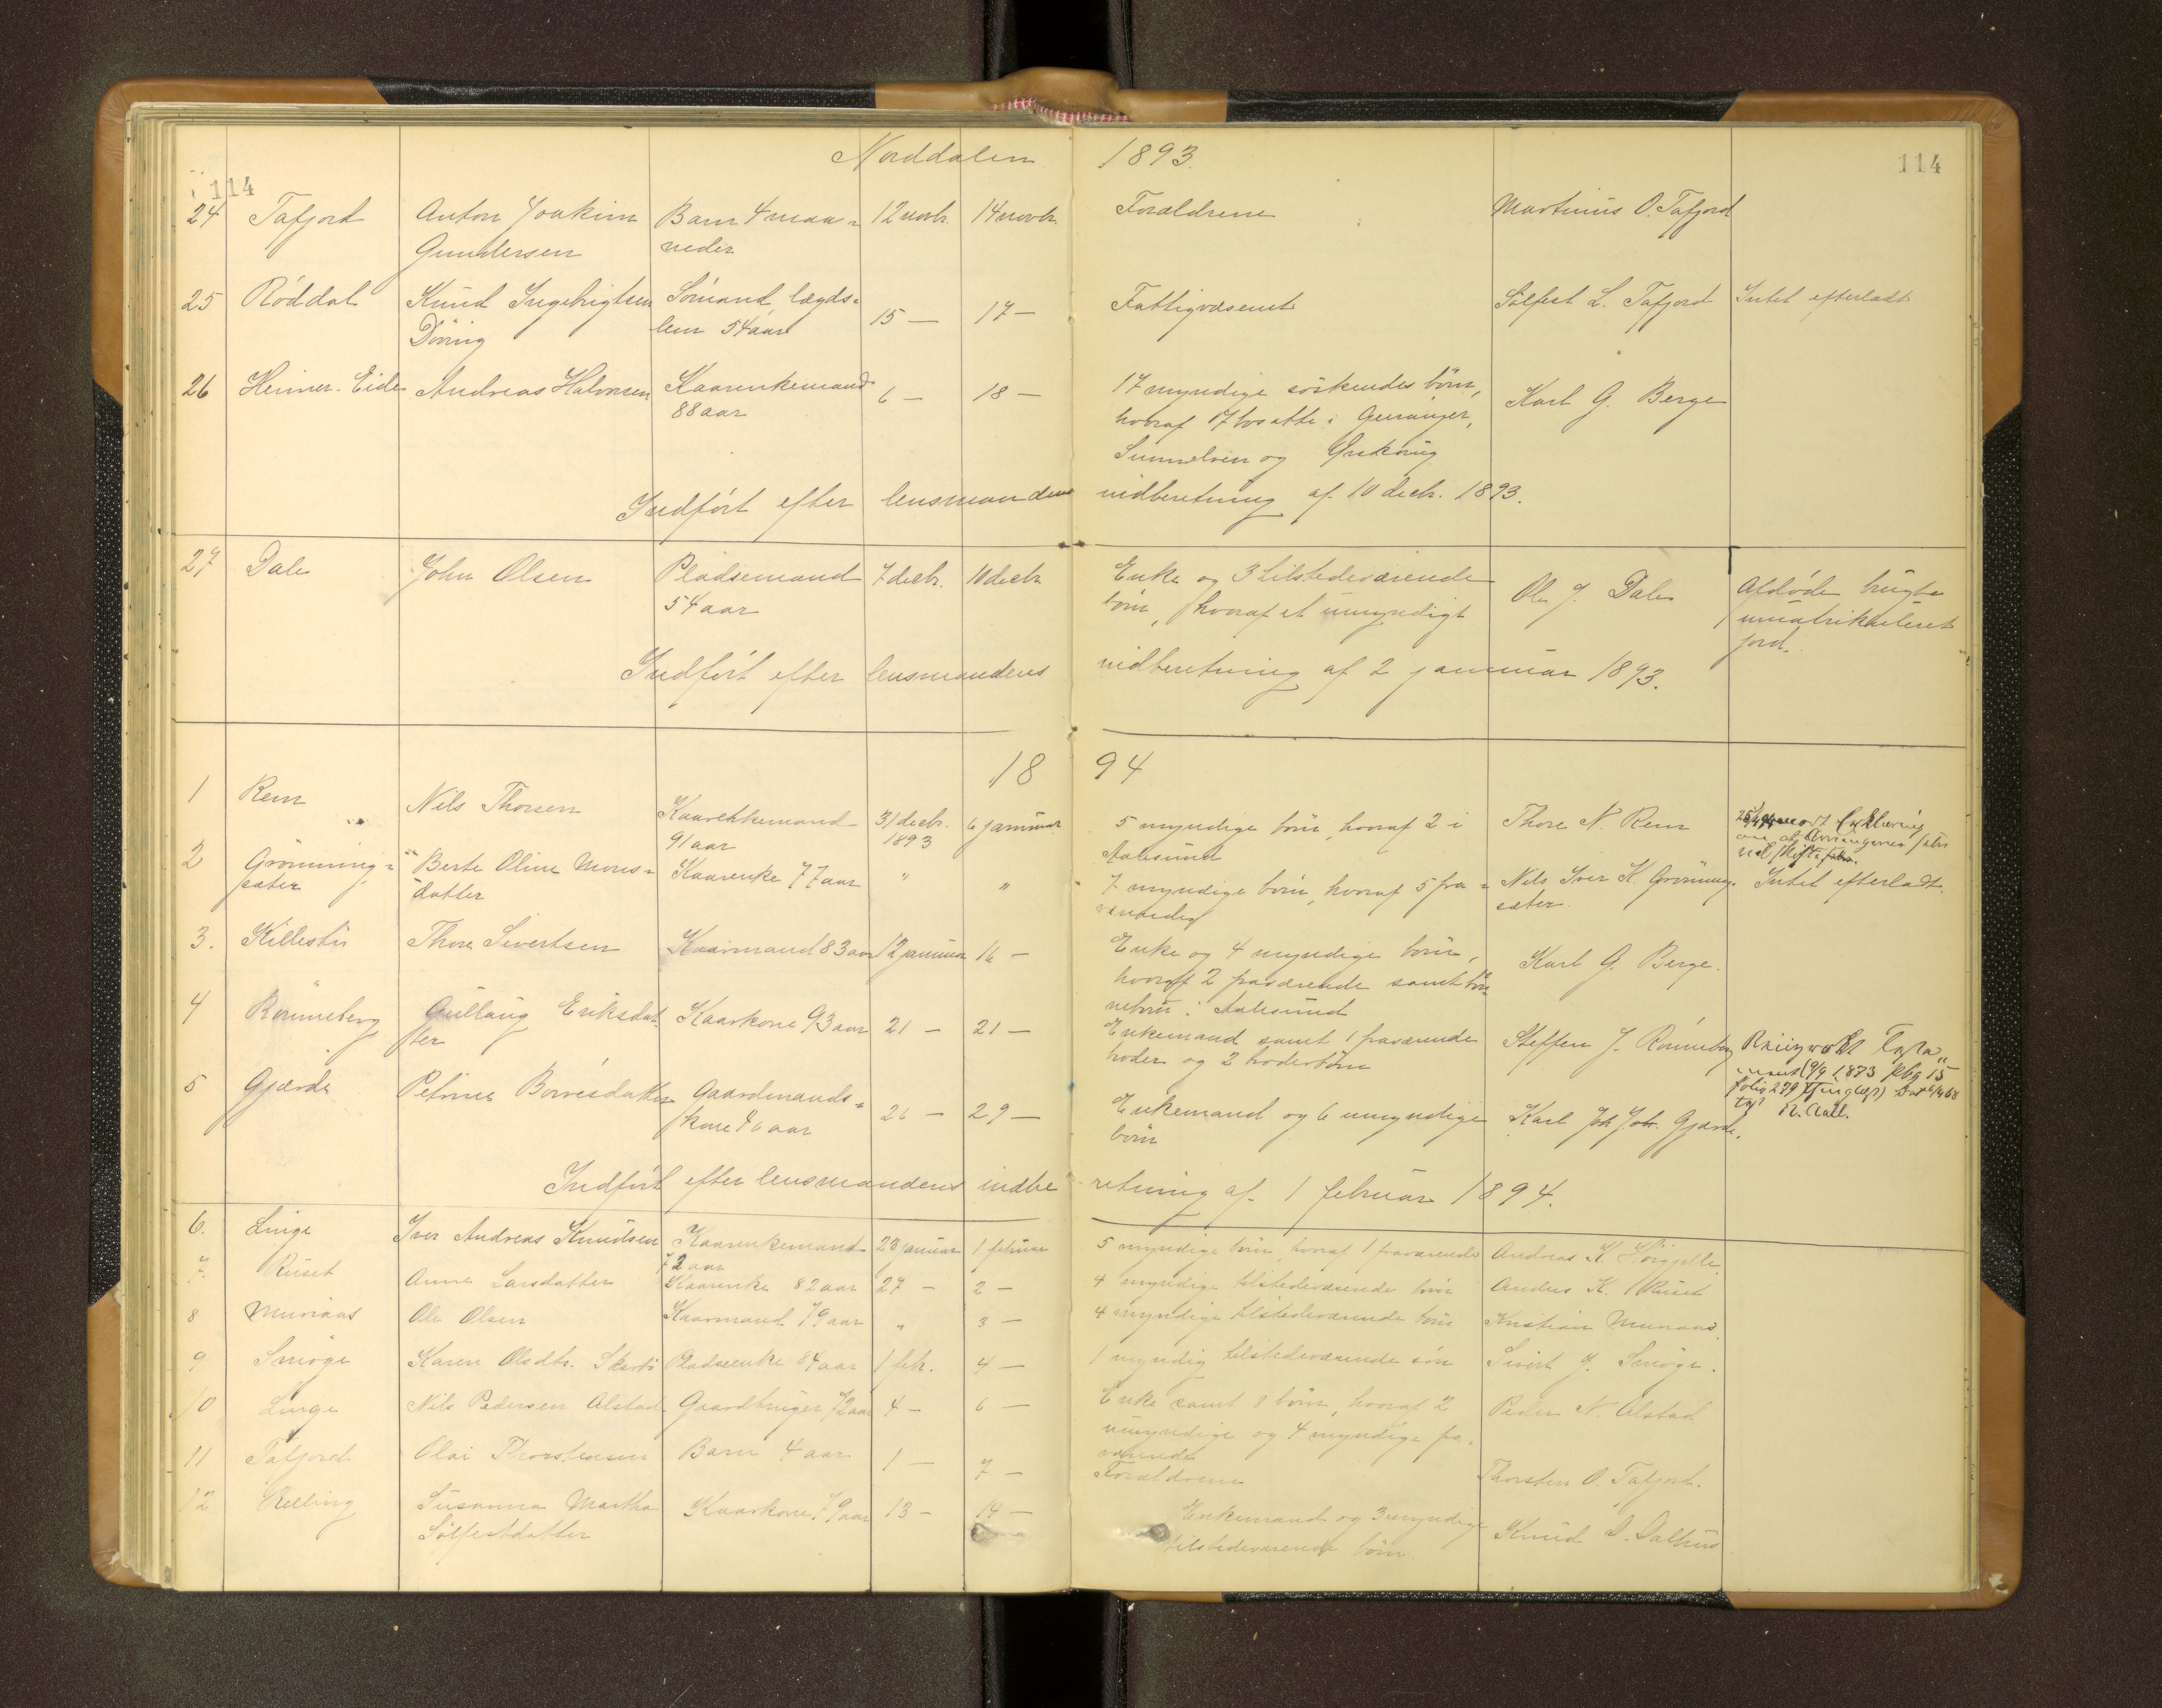 Norddalen 1893.
114
114
24 Tafjord Anton Joakim Barn 4 maa- 12 novbr. 14 novbr. Forældrene Martinus O. Tafjord
Gundersen neder
25 Röddal Knud Ingebrigtsen Sömand, lægds- 15 — 17 — Fattigvæsenet Sölfest L. Tafjord Intet efterladt
Döving lem 54 aar
26 Heimer-Eide Andreas Halvorsen Kaarenkemand 6 — 18 — 17 myndige söskendes börn, Karl G. Berge
88 aar hvoraf 17 bosatte i Geiranger,
Sunnelven og Örskoug
Indfört efter lensmandens indberetning af 10 decbr. 1893.
27 Dale John Olsen Pladsemand 7 decbr. 10 decbr. Enke og 3 tilstedeværende Ole J. Dale Afdöde brugte
54 aar börn, hvoraf et umyndigt umatrikuleret
jord.
Indfört efter lensmandens indberetning af 2 januar 1893.
1894
1 Rem Nils Thorsen Kaarenkemand 31 decbr. 6 januar 5 myndige börn, hvoraf 2 i Thore N. Rem
91 aar 1893 Aalesund
2 Grönning- Berte Oline Mons- Kaarenke 77 aar " " 7 myndige börn, hvoraf 5 fra- Nils Iver K. Grönning- Intet efterladt.
sæter datter værende sæter
3. Killesti Thore Sivertsen Kaarmand 83 aar 12 januar 16 — Enke og 4 myndige börn, Karl G. Berge.
hvoraf 2 fraværende samt bör-
nebörn i Aalesund
4 Rönneberg Gullaug Eriksdat- Kaarkone 93 aar 21 — 21 — Enkemand samt 1 fraværende Steffen J. Rönneberg
ter broder og 2 broderbörn
1873 folio 279
5 Gjærde Petrine Börresdatter Gaardmands- 26 — 29 — Enkemand og 6 umyndige Karl Joh. Gjærde.
kone 46 aar börn
Indfört efter lensmandens indberetning af 1 februar 1894.
6. Linge Iver Andreas Knudsen Kaarenkemand 28 januar 1 februar 5 myndige börn, hvoraf 1 fraværende Andreas K.
72 aar
7. Ruset Anne Larsdatter Kaarenke 82 aar 27 — 2 — 4 myndige tilstedeværende börn Anders K. Ruset
8 Muriaas Ole Olsen Kaarmand 79 aar " 3 — 4 myndige tilstedeværende börn Kristian Muriaas.
9 Smöge Karen Olsdtr. Pladsenke 84 aar 1 febr. 4 — 1 myndig tilstedeværende sön Sivert J. Smöge.
10 Linge Nils Pedersen Alstad Gaardbruger 72 aar 4 — 6 — Enke samt 8 börn, hvoraf 2 Peder N. Alstad
umyndige og 4 myndige fra-
værende
11 Tafjord Olai Thorstensen Barn 4 aar 1 — 7 — Forældrene Thorsten O. Tafjord.
12 Relling Susanna Martha Kaarkone 79 aar 13 — 14 — Enkemand og 3 myndige Knud D. Dalhus
Sölfestdatter tilstedeværende börn.